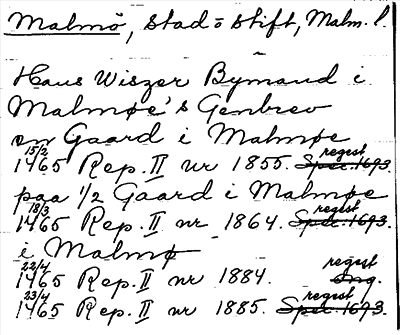 Malmö, stad o stift, Malm. l.
Hans Wiszer Bymand i
Malmøe's Genbrev
en Gaard i Malmøe
15/2 regest
1465 Rep. II nr 1855. Spec. 1693
paa 1/2 Gaard i Malmøe
18/3 regest
1465 Rep. II nr 1864. Spec. 1693.
i Malmø
22/4 regest
1465 Rep. II nr 1884. Ong.
23/4 regest
1465 Rep. II nr 1885. Spec. 1693.